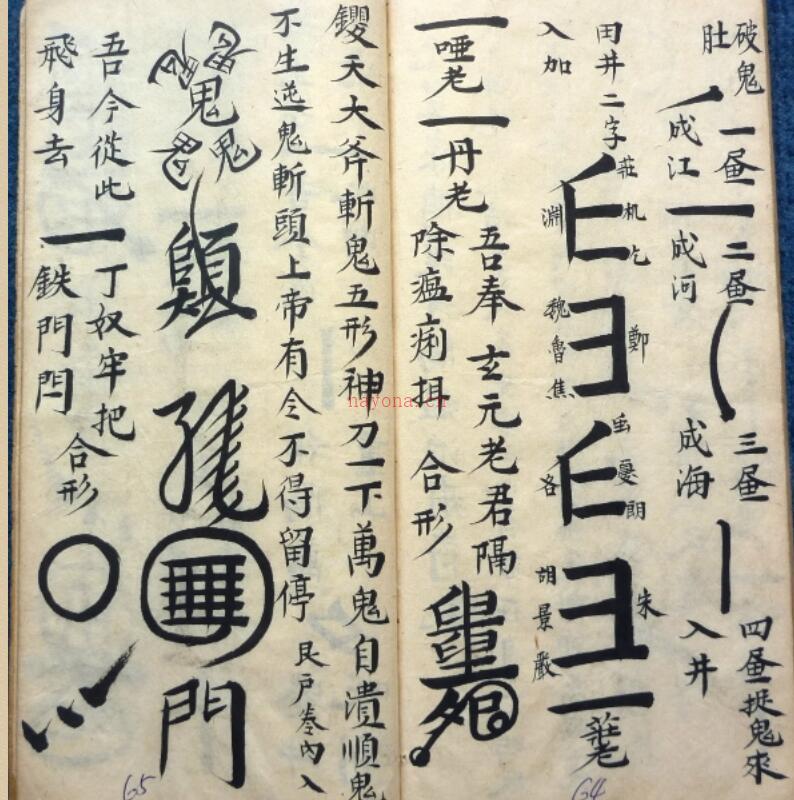 破鬼
肚
一昼
成江
二昼
成河
三昼
成海
四昼捉鬼來
入井
田井二字
入加
莊机乞
淵
鄭
魏魯焦
憂朗
洛
朱
胡景嚴
莊老
哑老
丹老
吾奉玄元老君隔
除瘟痢
合形
64
天大斧斬鬼五形神刀一下萬鬼自潰順鬼
不生逆鬼斬頭上帝有令不得留停
艮戸卷內入
鬼
鬼
門
吾今從此
飛身去
丁奴牢把
鉄門閂
合形
65
nayona.cn